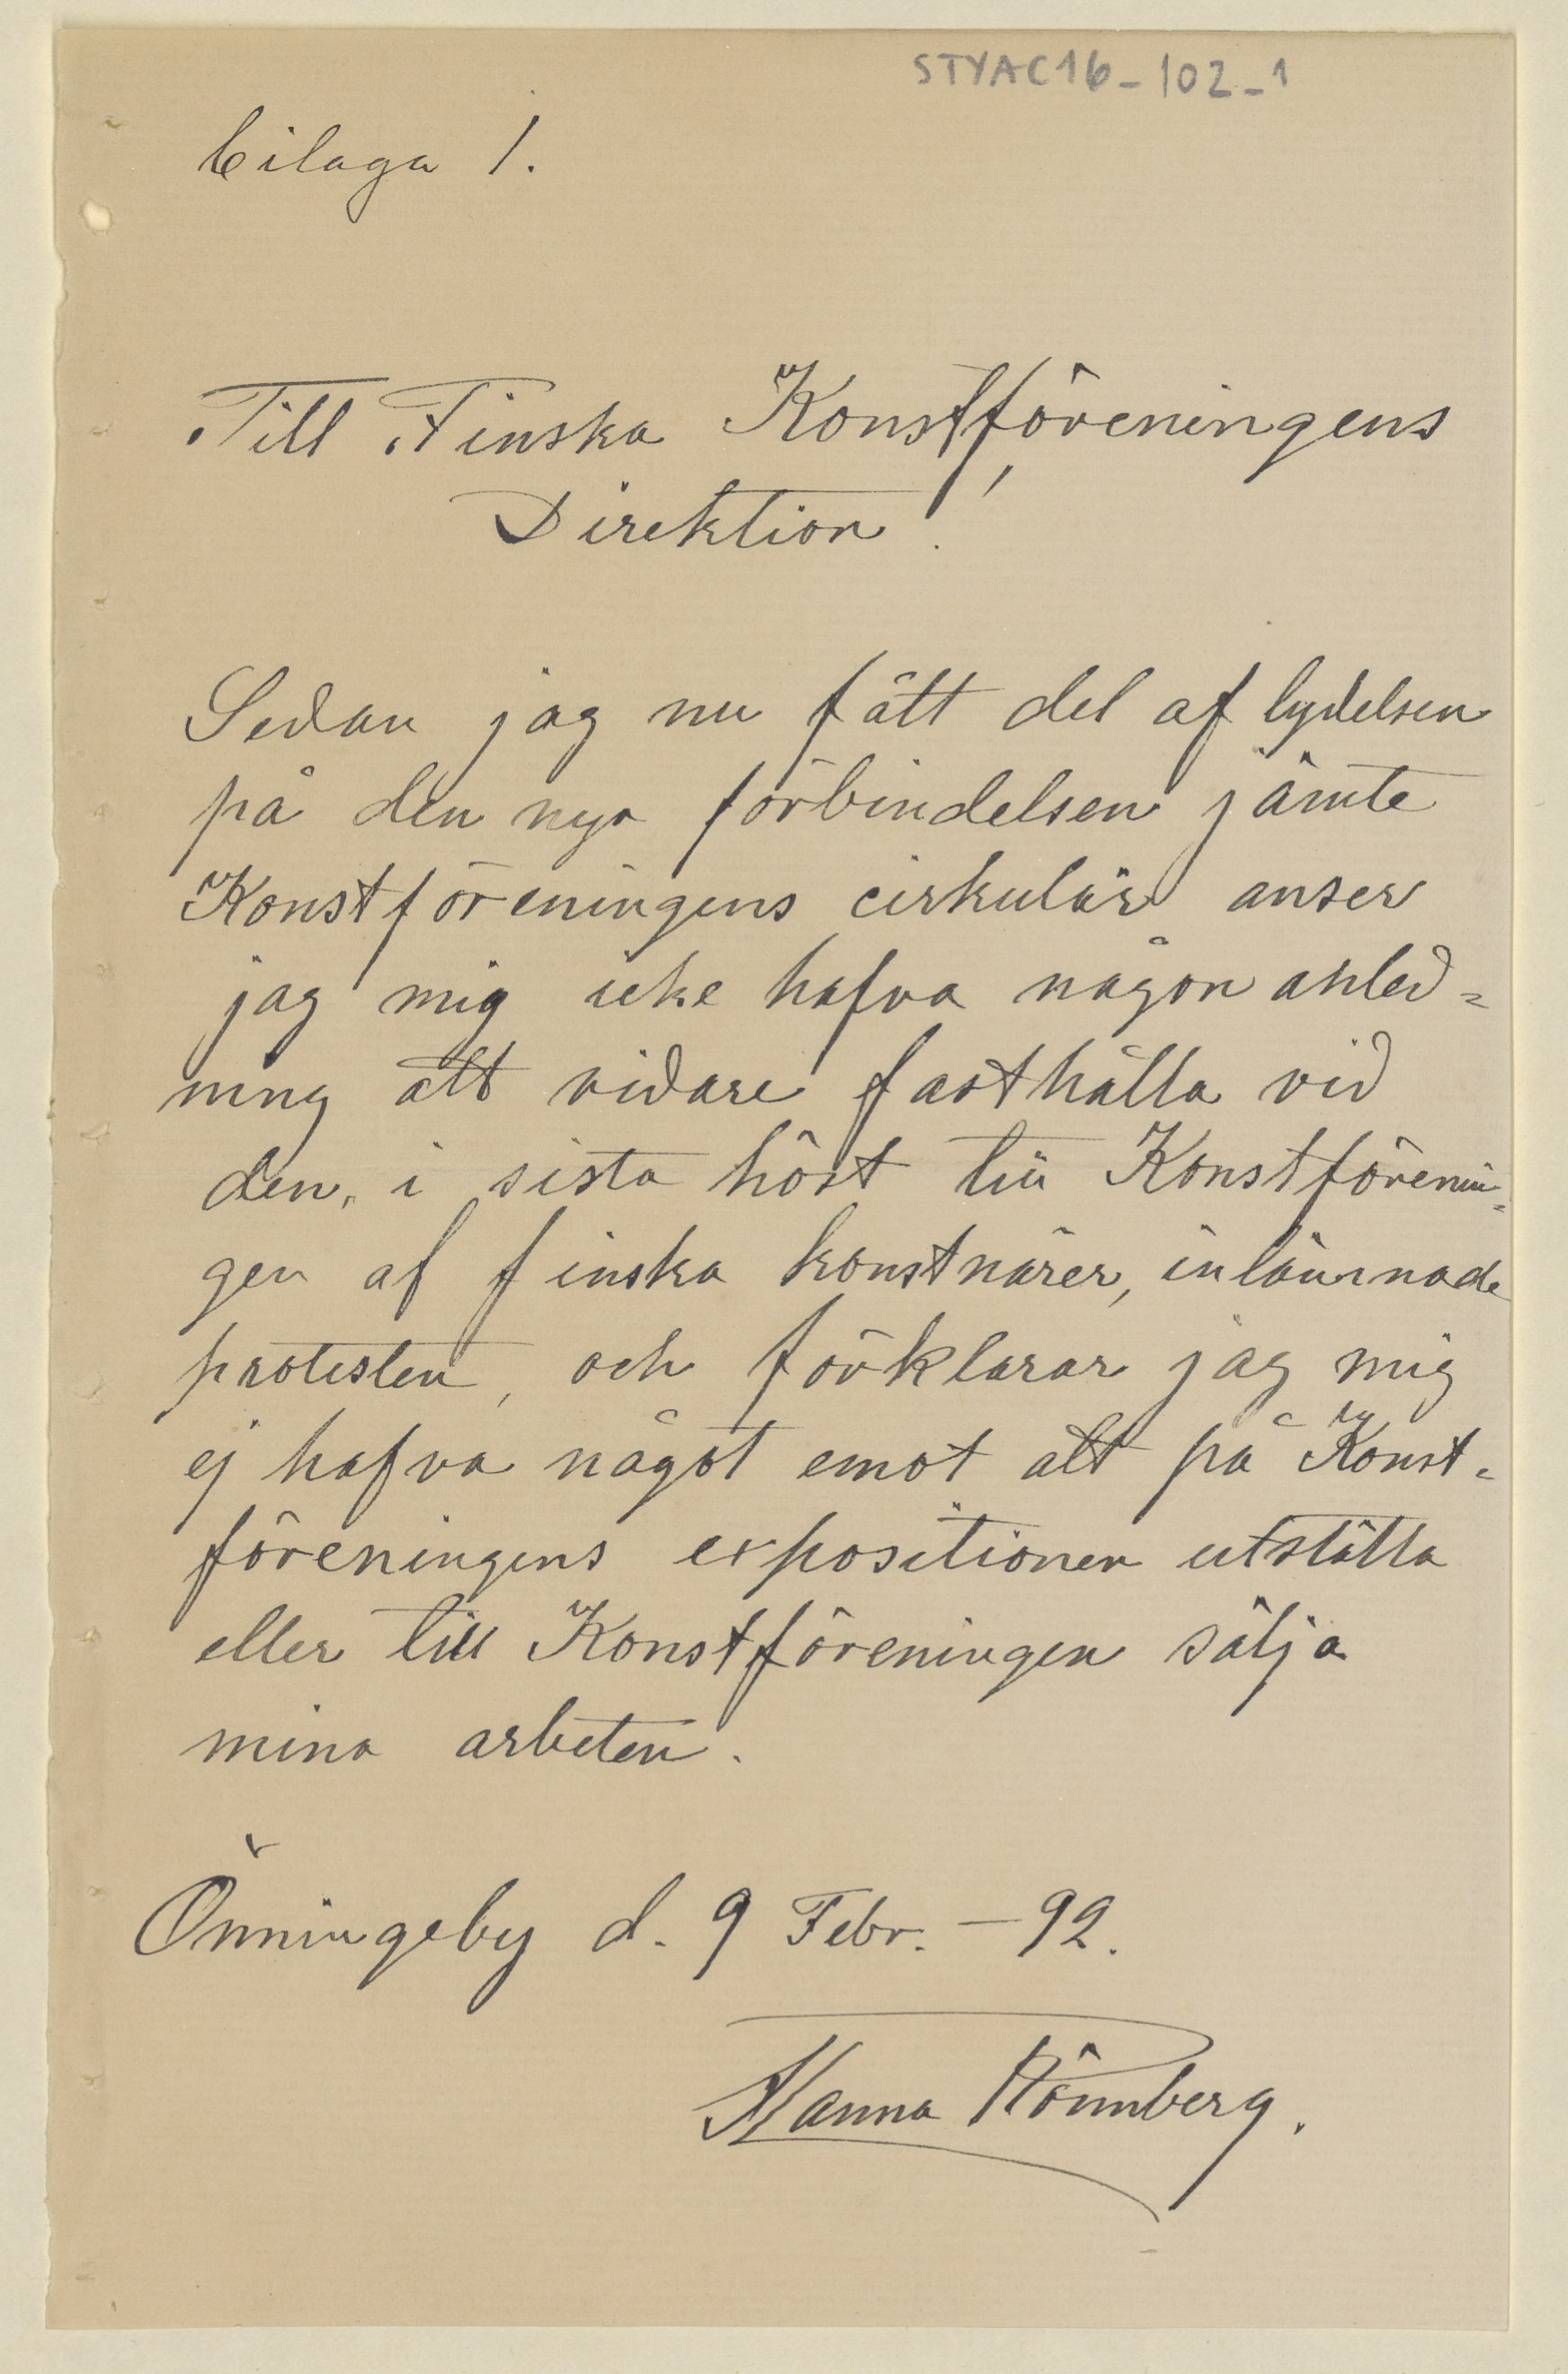 STYAC16_102_1
bilaga 1.
Till Finska Konstföreningens
Direktion!
Sedan jag nu fått del af lydelsen
på den nya förbindelsen jämte
Konstföreningens cirkulär anser
jag mig icke hafva någon anled=
ning att vidare fasthålla vid
den, i sista höst till Konstförenin=
gen af finska konstnärer, inlämnade
protesten, och förklarar jag mig
ej hafva något emot att på Konst=
föreningens expositioner utställa
eller till Konstföreningen sälja
mina arbeten.
Önningeby d. 9 Febr. –92.
Hanna Rönnberg.